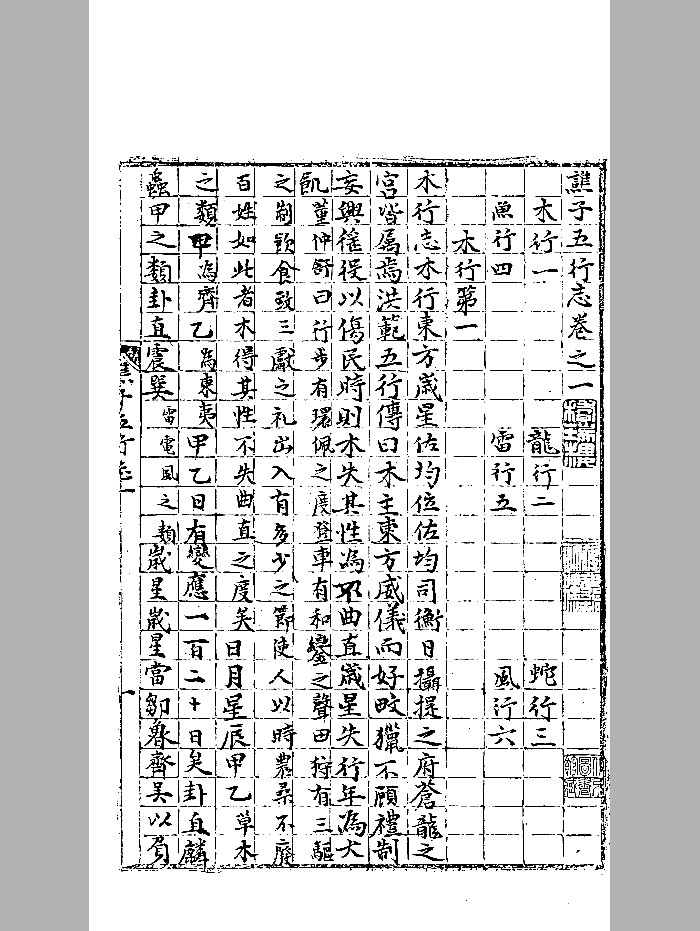 譙子五行志卷之一
木行一　龍行二　蛇行三
魚行四　雷行五　風行六
木行第一
木行志木行東方歲星佐均位佐均司衡日攝提之府蒼龍之
宮皆屬焉洪範五行傳曰木主東方威儀而好畋獵不顧禮制
妄興徭役以傷民時則木失其性為不曲直歲星失行年為大
飢董仲舒曰行步有環佩之度登車有和鑾之聲田狩有三驅
之制飲食致三獻之礼出入有多少之節使人以時農桑不廢
百姓如此者木得其性不失曲直之度矣日月星辰甲乙草木
之類甲為齊乙為東夷甲乙日有變應一百二十日矣卦直麟
蟲甲之類卦直震巽雷電風之類歲星歲星當邹魯齊吳以
譙子五行志
一